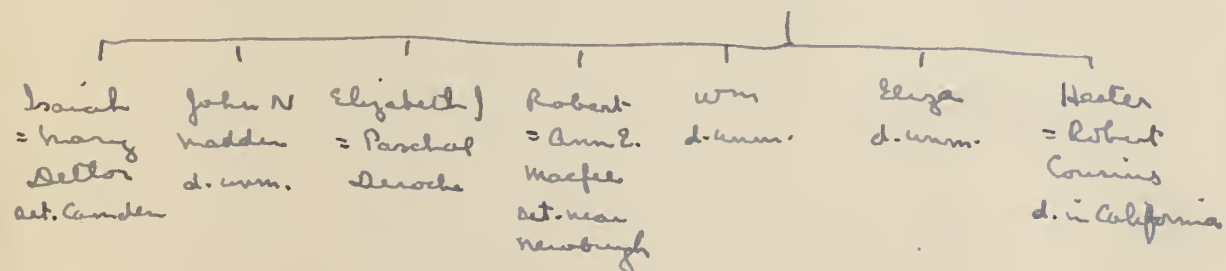 Isaiah
= Mary
Detlor
set. Camden
John N
Madden
d. unm.
Elizabeth J
= Paschal
Deroche
Robert
= Ann E.
Macfee
set. near
Newburgh
Wm
d. unm.
Eliza
d. unm.
Hester
= Robert
Cousins
d. in California